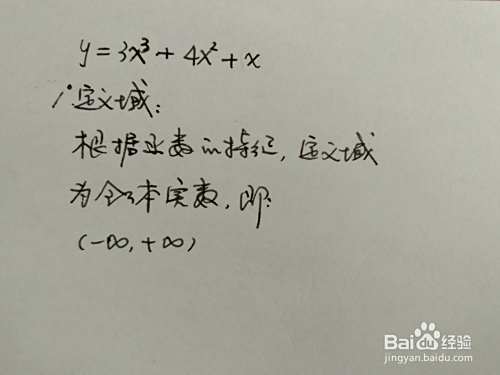 y = 3x³ + 4x² + x
1° 定义域:
根据函数的特征, 定义域
为全体实数, 即:
(-∞, +∞)
Baidu经验
jingyan.baidu.com